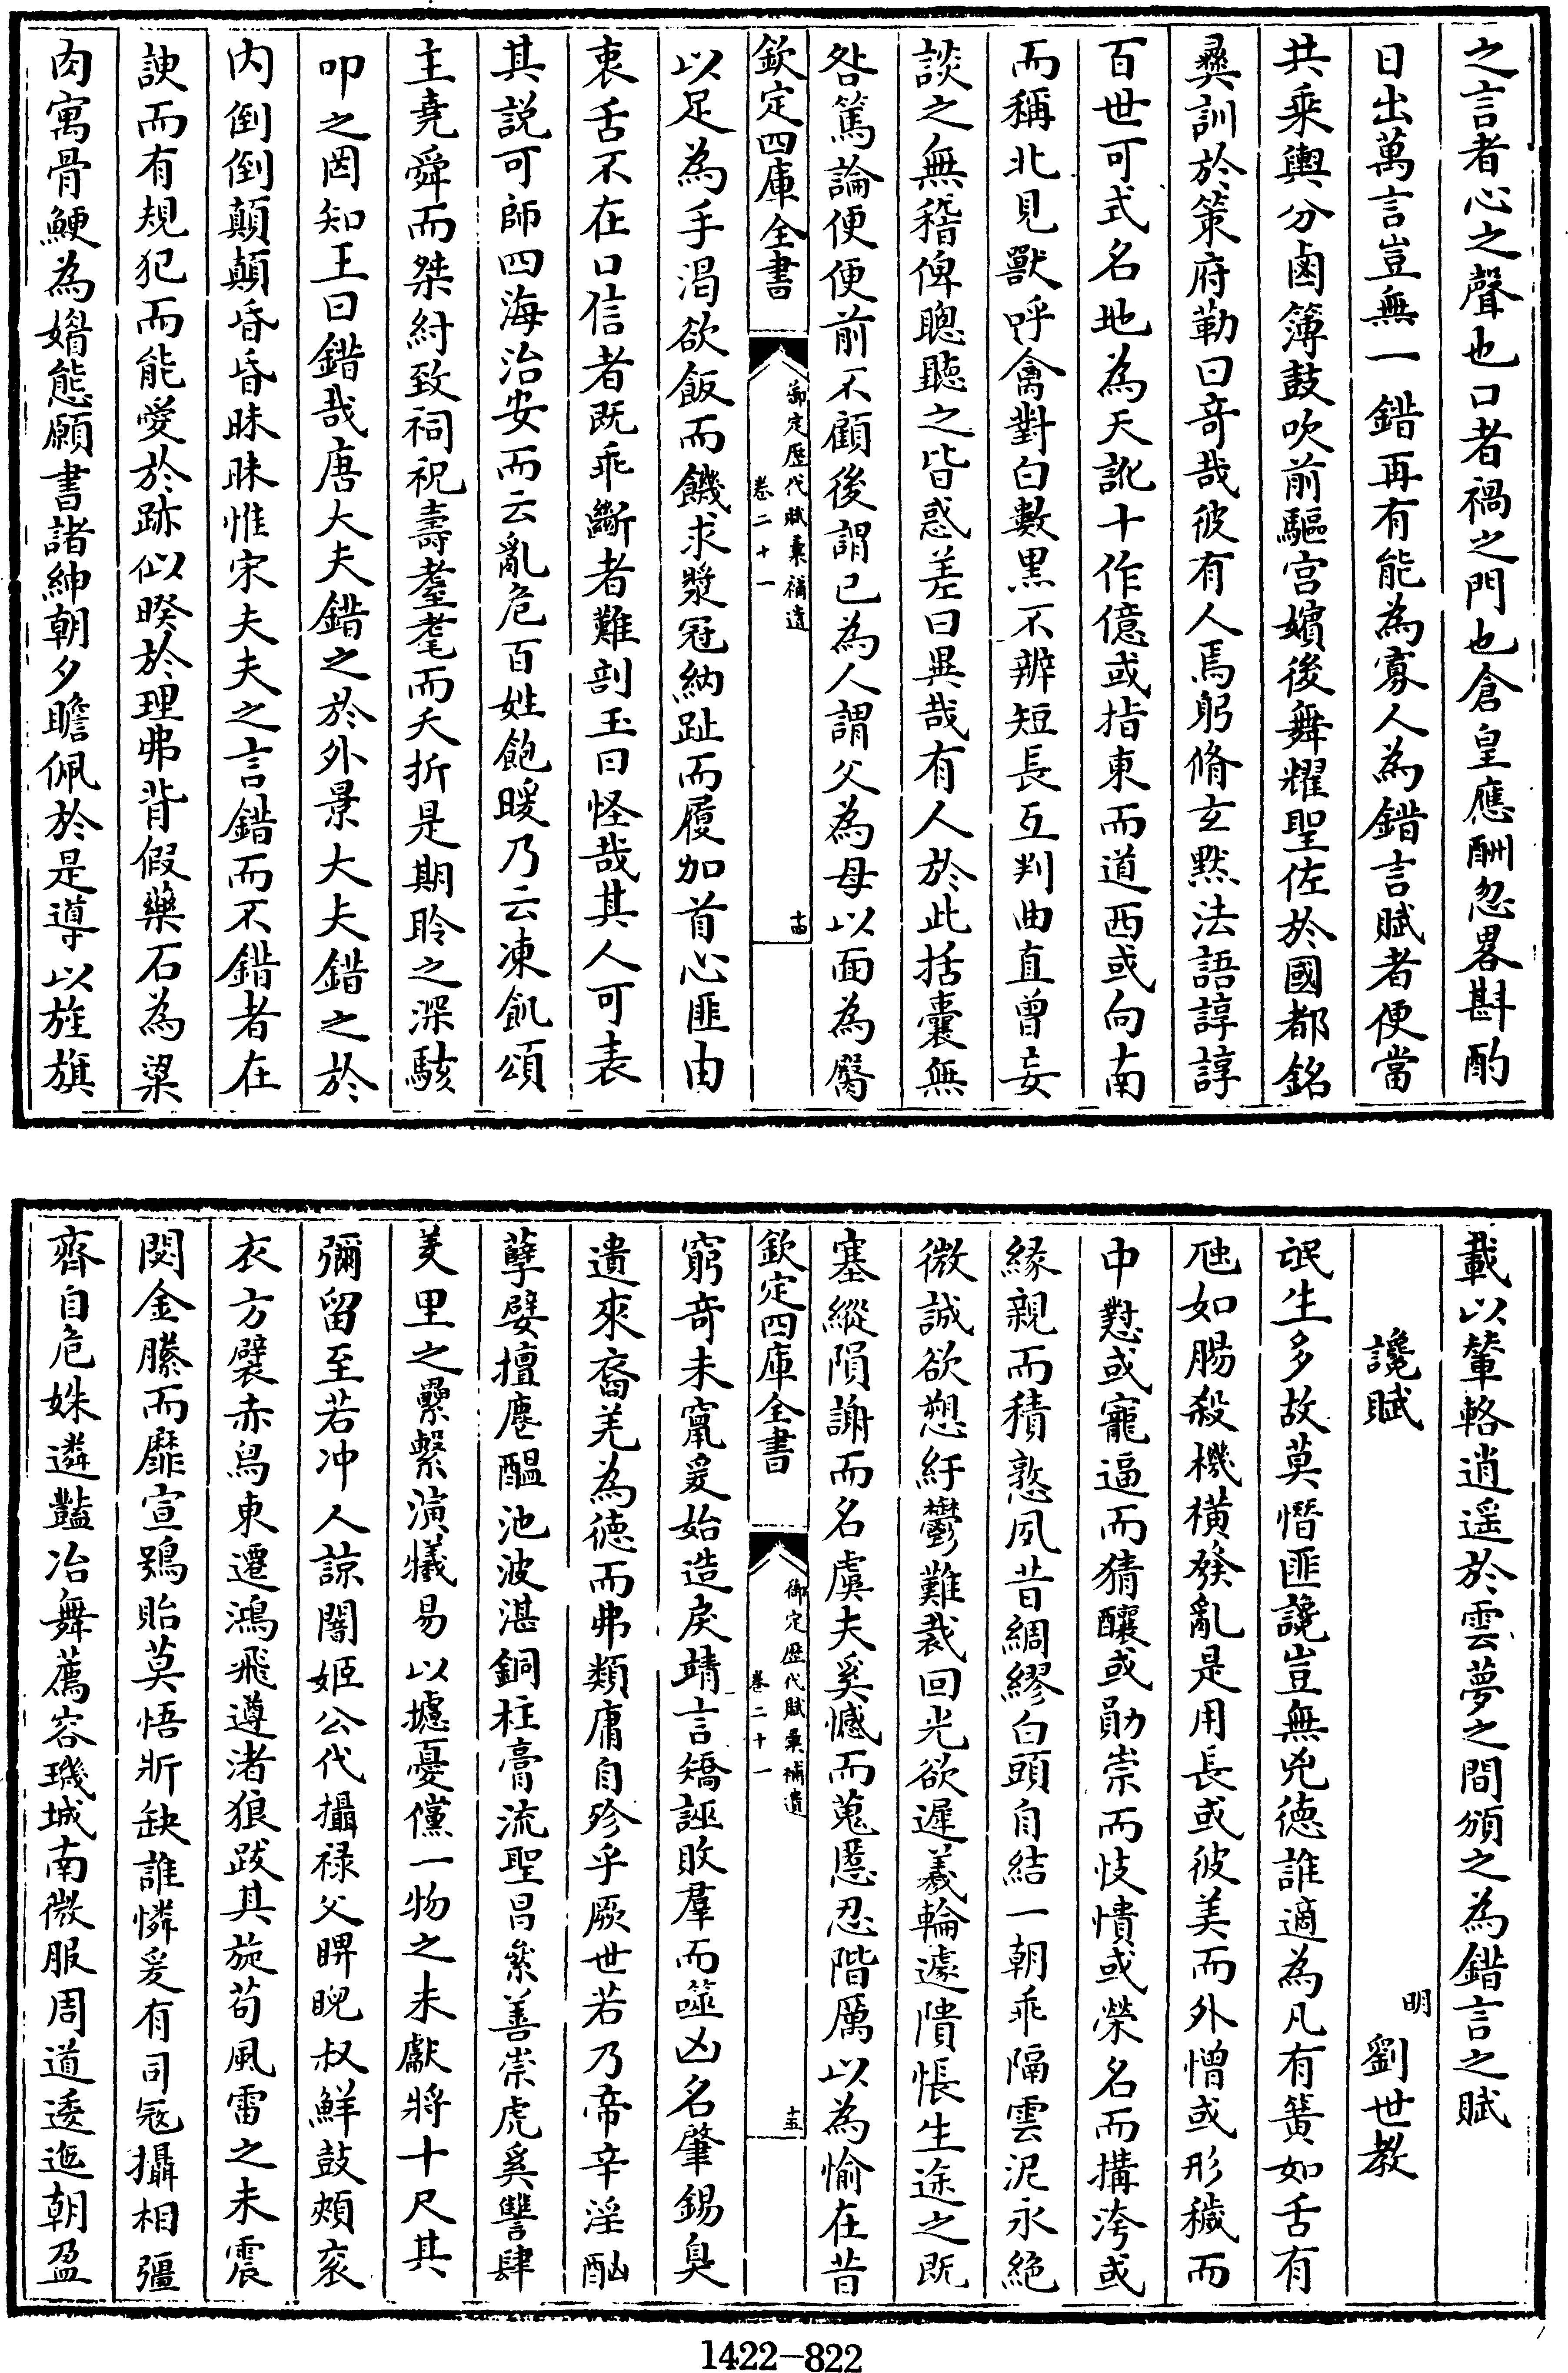 之言者心之聲也口者禍之門也倉皇應酬忽畧斟酌
日出萬言豈無一錯再有能為寡人為錯言賦者便當
共乘輿分鹵簿鼓吹前驅宫嬪後舞耀聖佐於國都銘
彞訓於策府勒曰竒哉彼有人焉躬脩玄黙法語諄諄
百世可式名地為天訛十作億或指東而道西或向南
而稱北見獸呼禽對白數黒不辨短長互判曲直曾妄
談之無稽俾聰聽之皆惑差曰異哉有人於此括囊無
咎篤論便便前不顧後謂已為人謂父為母以面為臋
欽定四庫全書
御定歴代賦彙補遺
卷二十一
十四
以足為手渴欲飯而饑求漿冠納趾而履加首心匪由
衷舌不在口信者既乖斷者難剖玉曰怪哉其人可表
其説可師四海治安而云亂危百姓飽暖乃云凍飢頌
主堯舜而桀紂致祠祝壽耋耄而夭折是期聆之深駭
叩之罔知王曰錯哉唐大夫錯之於外景大夫錯之於
内倒倒顛顛昏昏昧昧惟宋夫夫之言錯而不錯者在
諛而有規犯而能愛於跡似暌於理弗背假藥石為梁
肉寓骨鯁為媚態願書諸紳朝夕瞻佩於是導以旌旗
載以輦輅逍遥於雲夢之間頒之為錯言之賦
讒賦
明
劉世教
氓生多故莫憯匪讒豈無兇德誰適為凡有簧如舌有
虺如腸殺機横發亂是用長或彼美而外憎或形穢而
中懟或寵逼而猜釀或勛崇而忮憒或榮名而搆洿或
緣親而積憝夙昔綢繆白頭自結一朝乖隔雲泥永絶
微誠欲愬紆鬱難裁回光欲遲羲輪遽隤悵生途之既
塞縱隕謝而名虞夫奚憾而蒐慝忍階厲以為愉在昔
欽定四庫全書
御定歴代賦彙補遺
卷二十一
十五
窮竒未竄爰始造戾靖言矯誣敗羣而噬凶名肇錫臭
遺來裔羌為徳而弗類庸自殄乎厥世若乃帝辛淫酗
孽嬖嬰擅塵醖池波湛銅柱膏流聖昌絫善崇虎奚讐肆
羑里之纍繫演犧易以攄憂儻一物之未獻將十尺其
彌留至若冲人諒闇姬公代攝禄父睥睨叔鮮鼓頰衮
衣方襞赤舄東遷鴻飛遵渚狼跋其旋苟風雷之未震
閟金縢而靡宣鴞貽莫悟斨缺誰憐爰有司冦攝相彊
齊自危姝遴豔冶舞薦容璣城南微服周道逶迤朝盈
1422-822